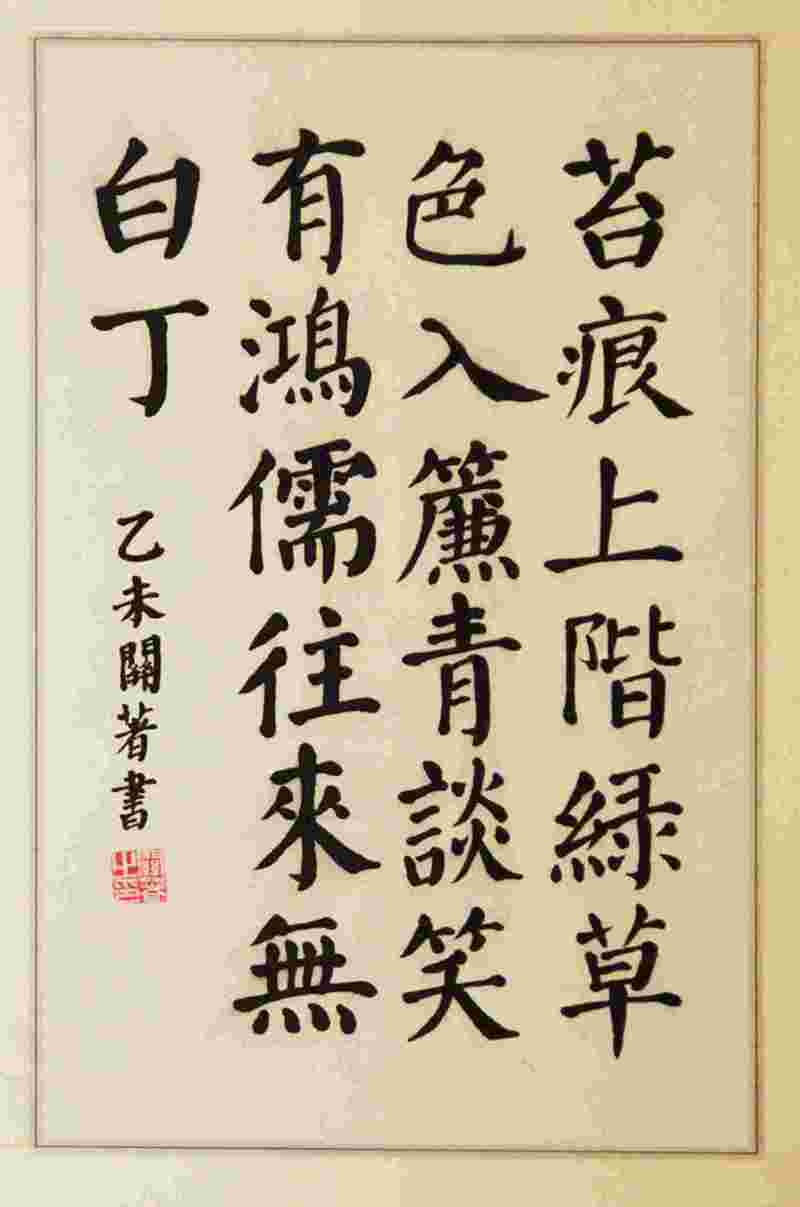 苔痕上階綠草
色入簾青談笑
有鴻儒往來無
白丁
乙未關著書